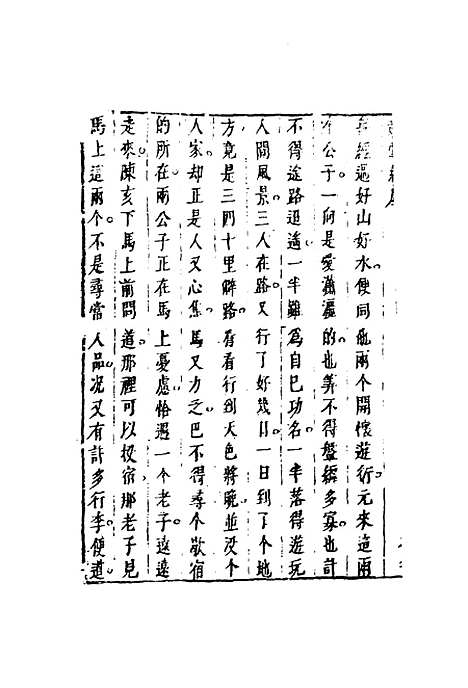 每經過好山好水便同他兩个開懷遊衍元來這兩
个公子一向是愛瀟灑的也算不得盤纏多寡也計
不得途路迢遙一半難爲自已功名一半落得遊玩
人間風景三人在路又行了好幾日一日到了个地
方竟是三四十里僻路看看行到天色將晚並没个
人家却正是人又心焦馬又力乏巴不得尋个歇宿
的所在兩公子正在馬上憂慮恰遇一个老子遠遠
走來陳亥下馬上前問道那裡可以投宿那老子見
馬上這兩个不是尋常人品况又有許多行李便道